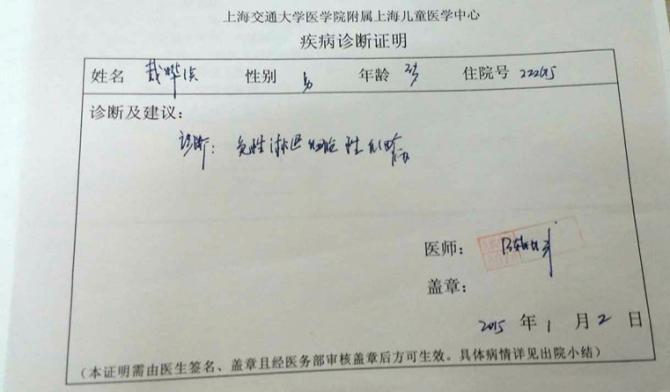 上海交通大学医学院附属上海儿童医学中心
疾病诊断证明
姓名 戴 性别 男 年龄 2岁 住院号
诊断及建议：
诊断：急性淋巴细胞性白血病
医师：
盖章：
2015 年 1 月 2 日
(本证明需由医生签名、盖章且经医务部审核盖章后方可生效。具体病情详见出院小结)